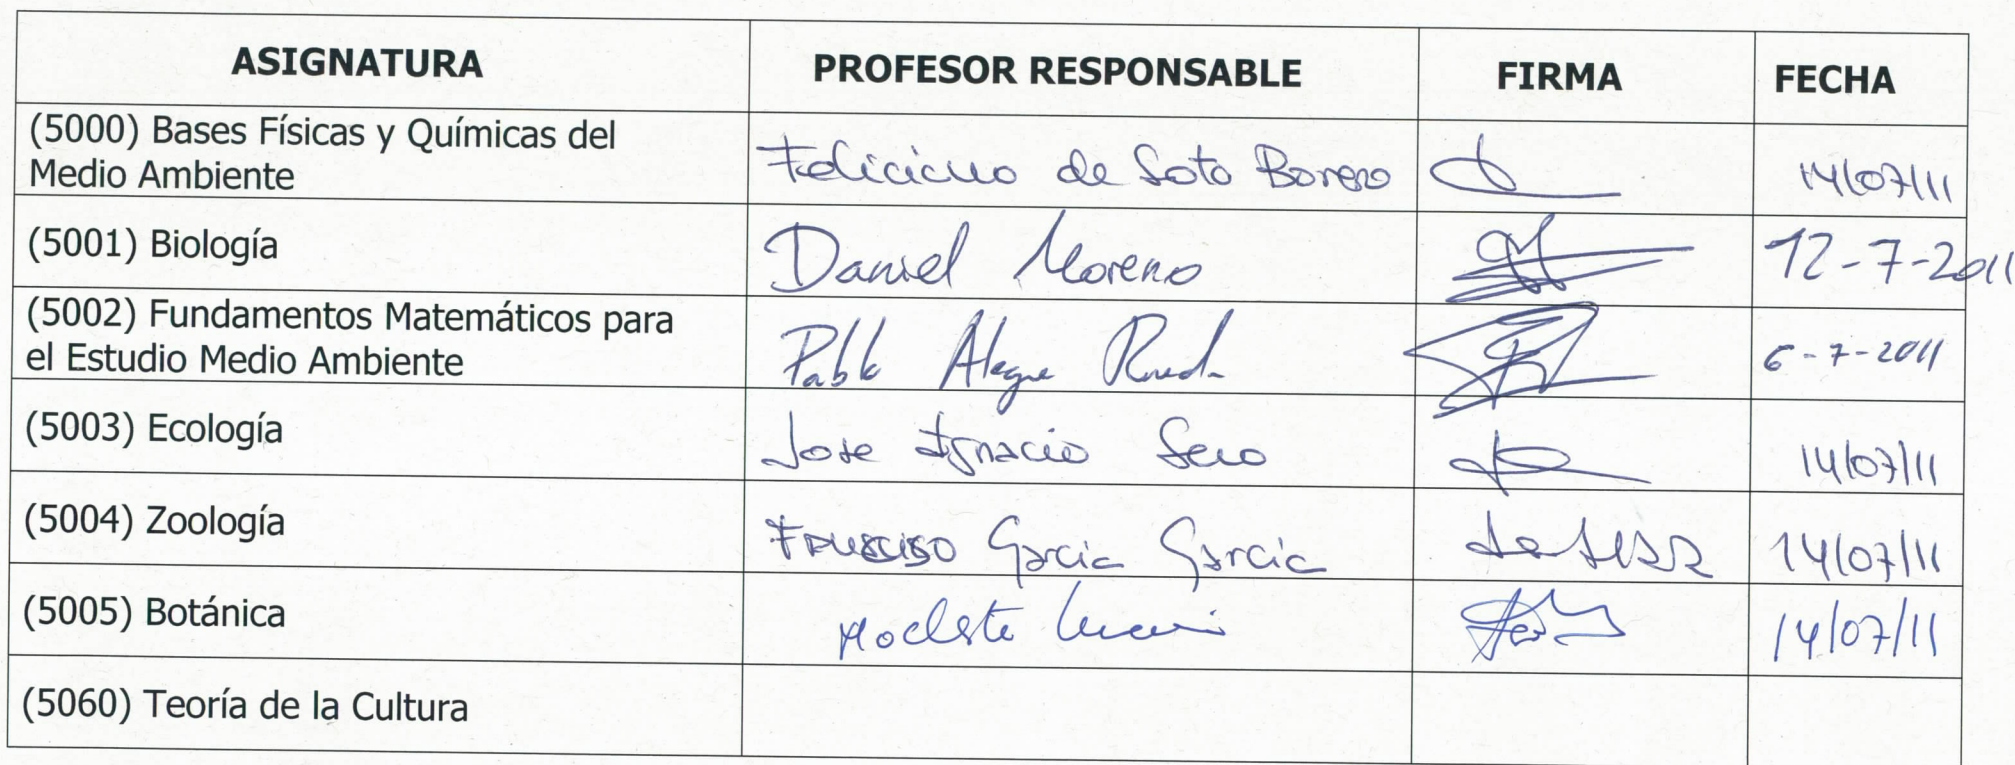 ASIGNATURA PROFESOR RESPONSABLE FIRMA FECHA
(5000) Bases Físicas y Químicas del
Medio Ambiente
Feliciano de Soto Borrero 14/07/11
(5001) Biología Daniel Moreno 12-7-2011
(5002) Fundamentos Matemáticos para
el Estudio Medio Ambiente
Pablo Alegre Rueda 6-7-2011
(5003) Ecología Jose Ignacio 14/07/11
(5004) Zoología Francisco García García 14/07/11
(5005) Botánica Modesto 14/07/11
(5060) Teoría de la Cultura